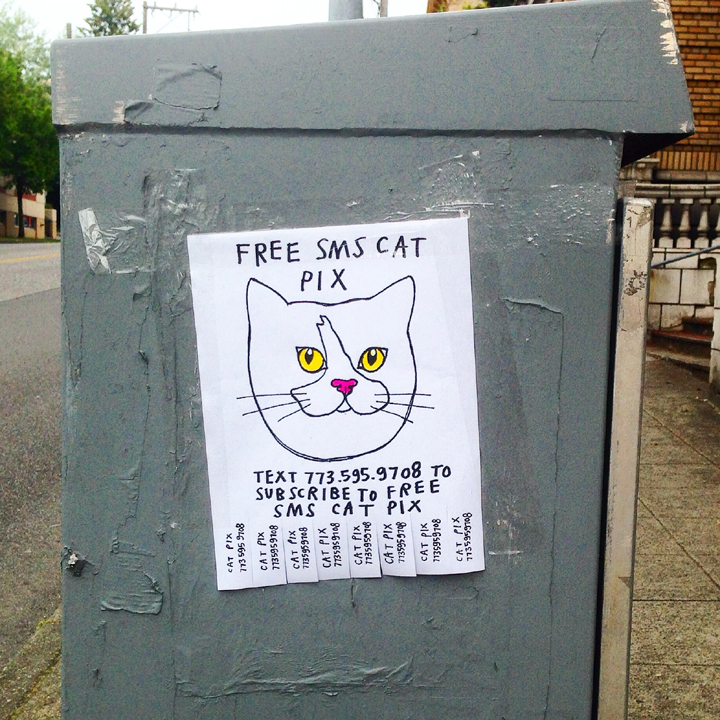 FREE SMS CAT
PIX
TEXT 773.595.9708 TO
SUBSCRIBE TO FREE
SMS CAT PIX
CAT PIX
773 595 9708
CAT PIX
7735959708
CAT PIX
7735959708
CAT PIX
7735959708
CAT PIX
7735959708
CAT PIX
7735959708
CAT PIX
7735959708
CAT PIX
7735959708